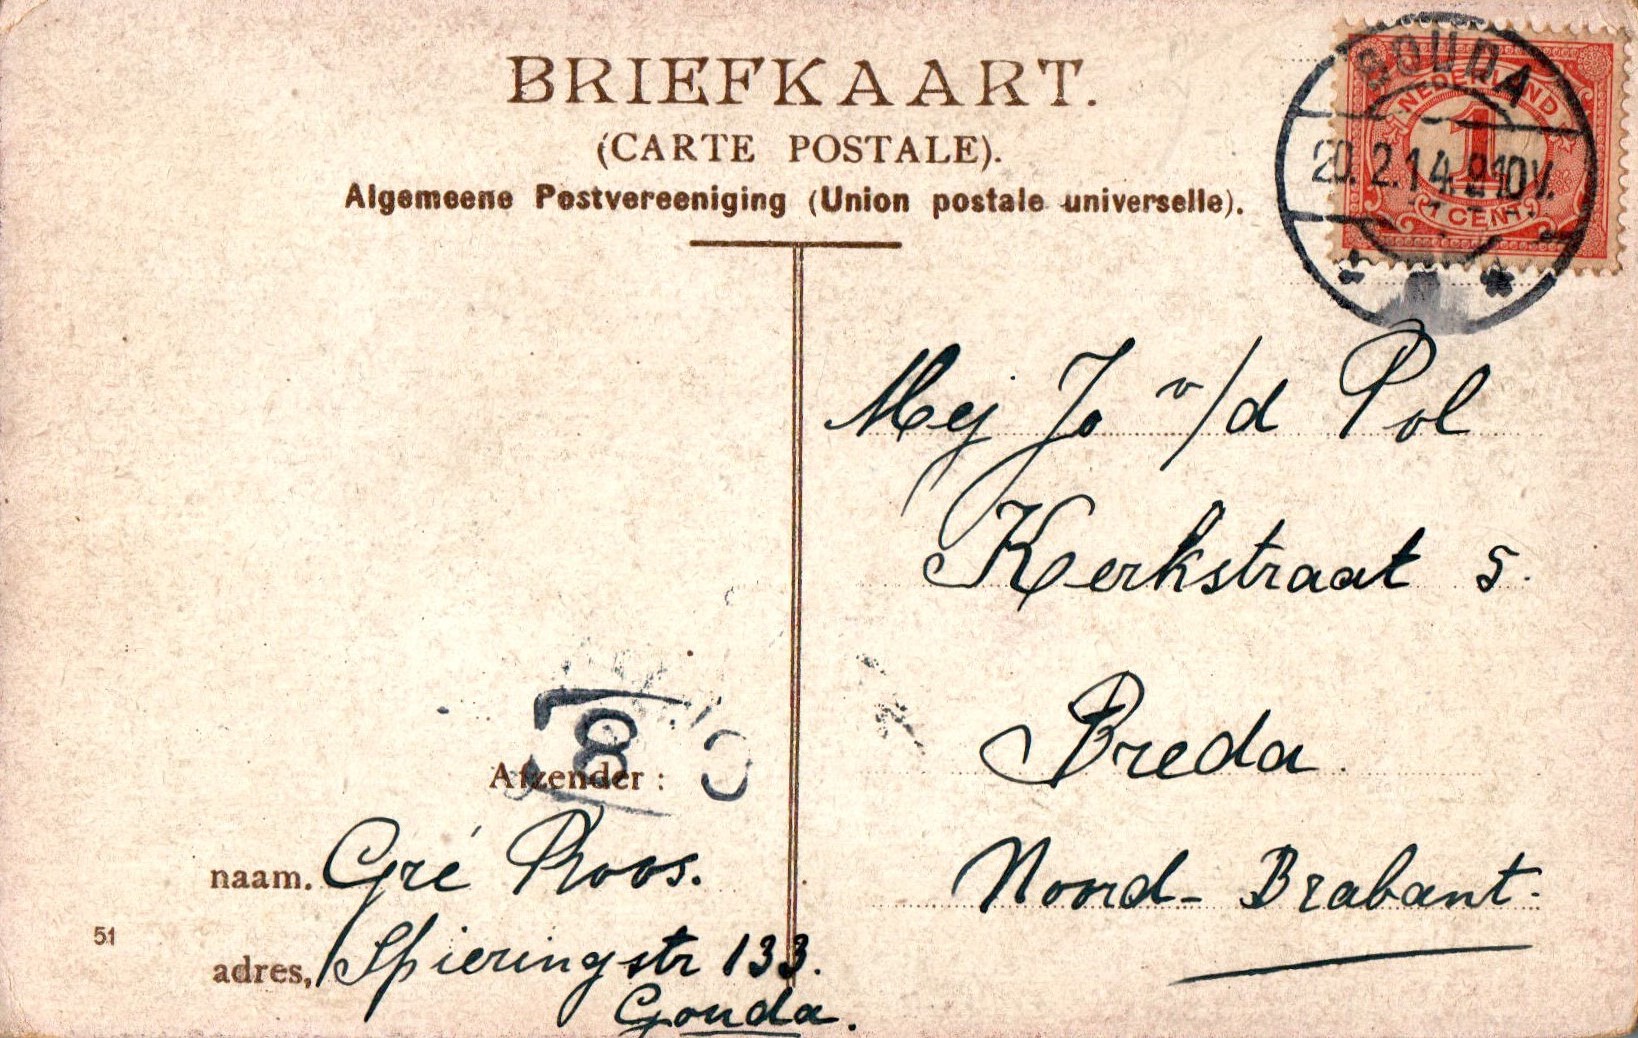 BRIEFKAART.
(CARTE POSTALE).
Algemeene Postvereeniging (Union postale universelle).
GOUDA
NEDERLAND
1
20.2.14. 9-10V.
1 CENT.
Mej Jo v/d Pol
Kerkstraat 5.
Breda.
Noord-Brabant.
8
Afzender:
naam. Gré Roos.
51
adres, Spieringstr 133.
Gouda.